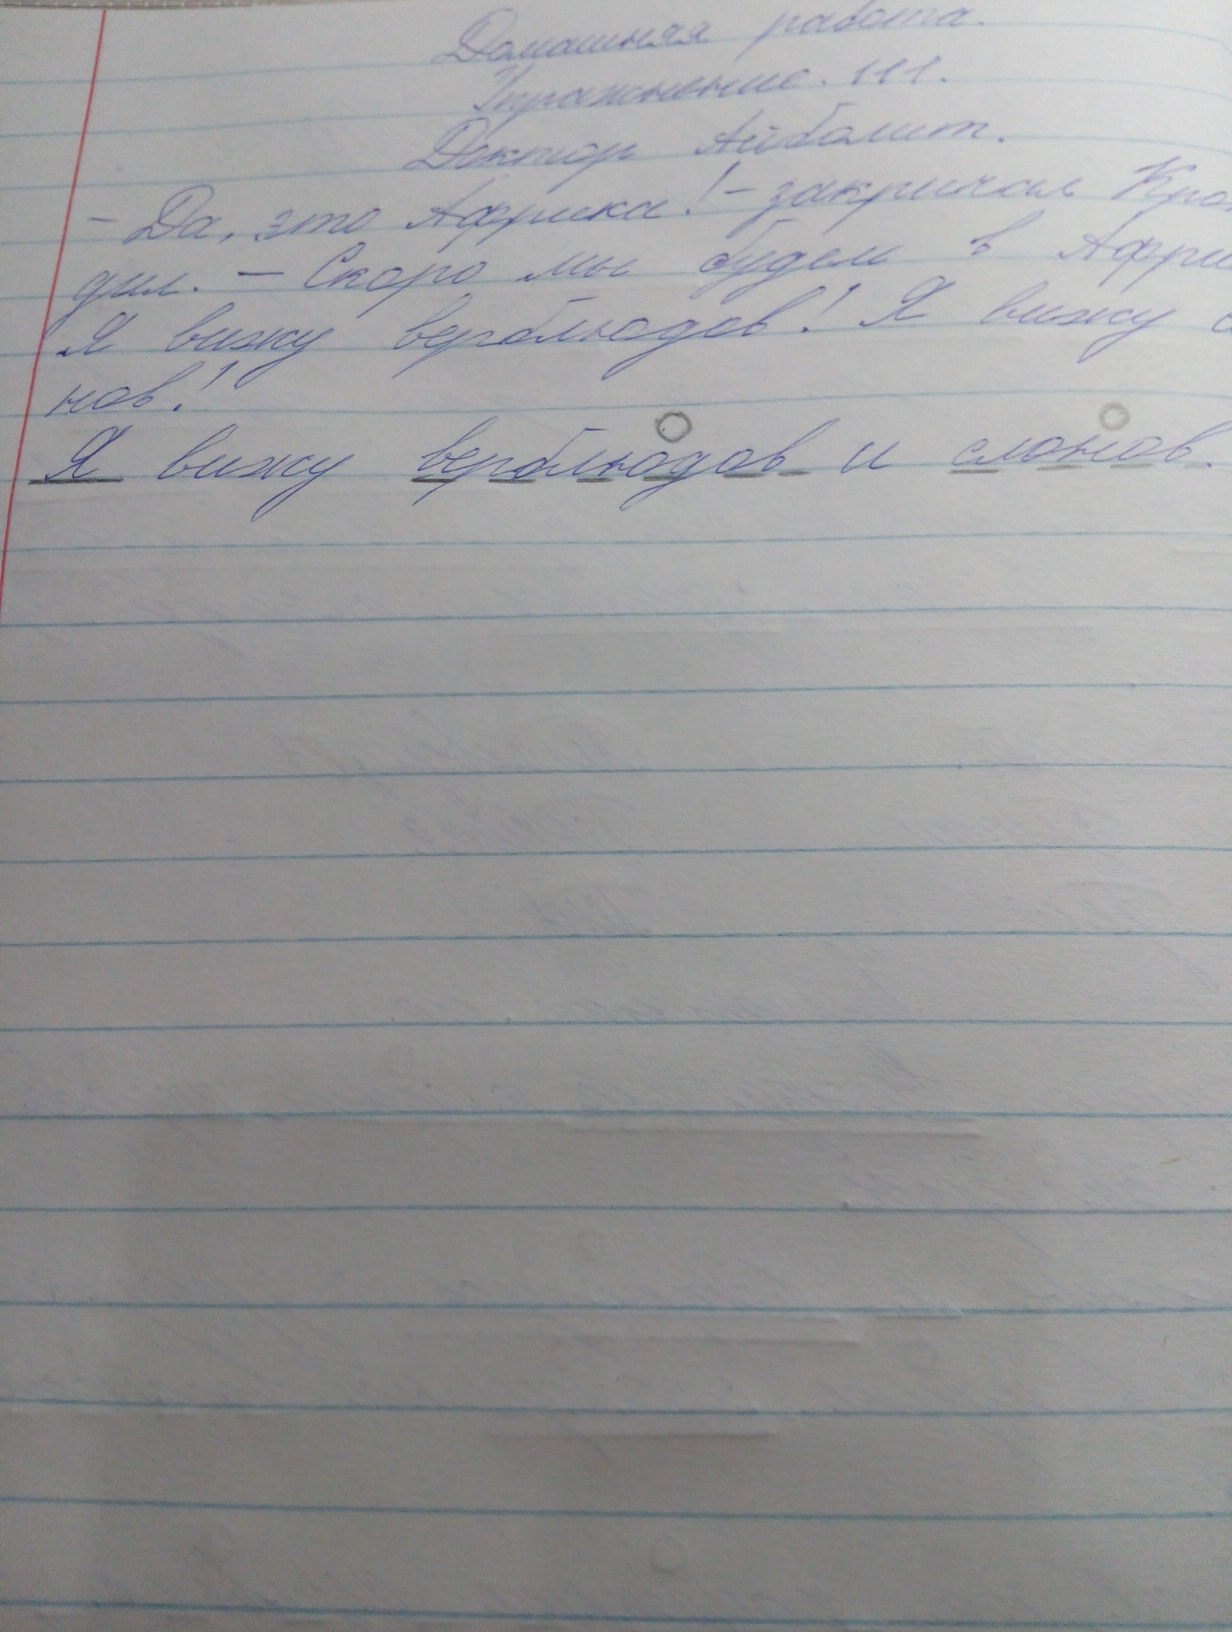 Домашняя работа.
Упражнение. 111.
Доктор Айболит.
- Да, это Африка! - закричал Кро
дил. - Скоро мы будем в Афри
Я вижу верблюдов! Я вижу с
нов!
Я вижу верблюдов и слонов.